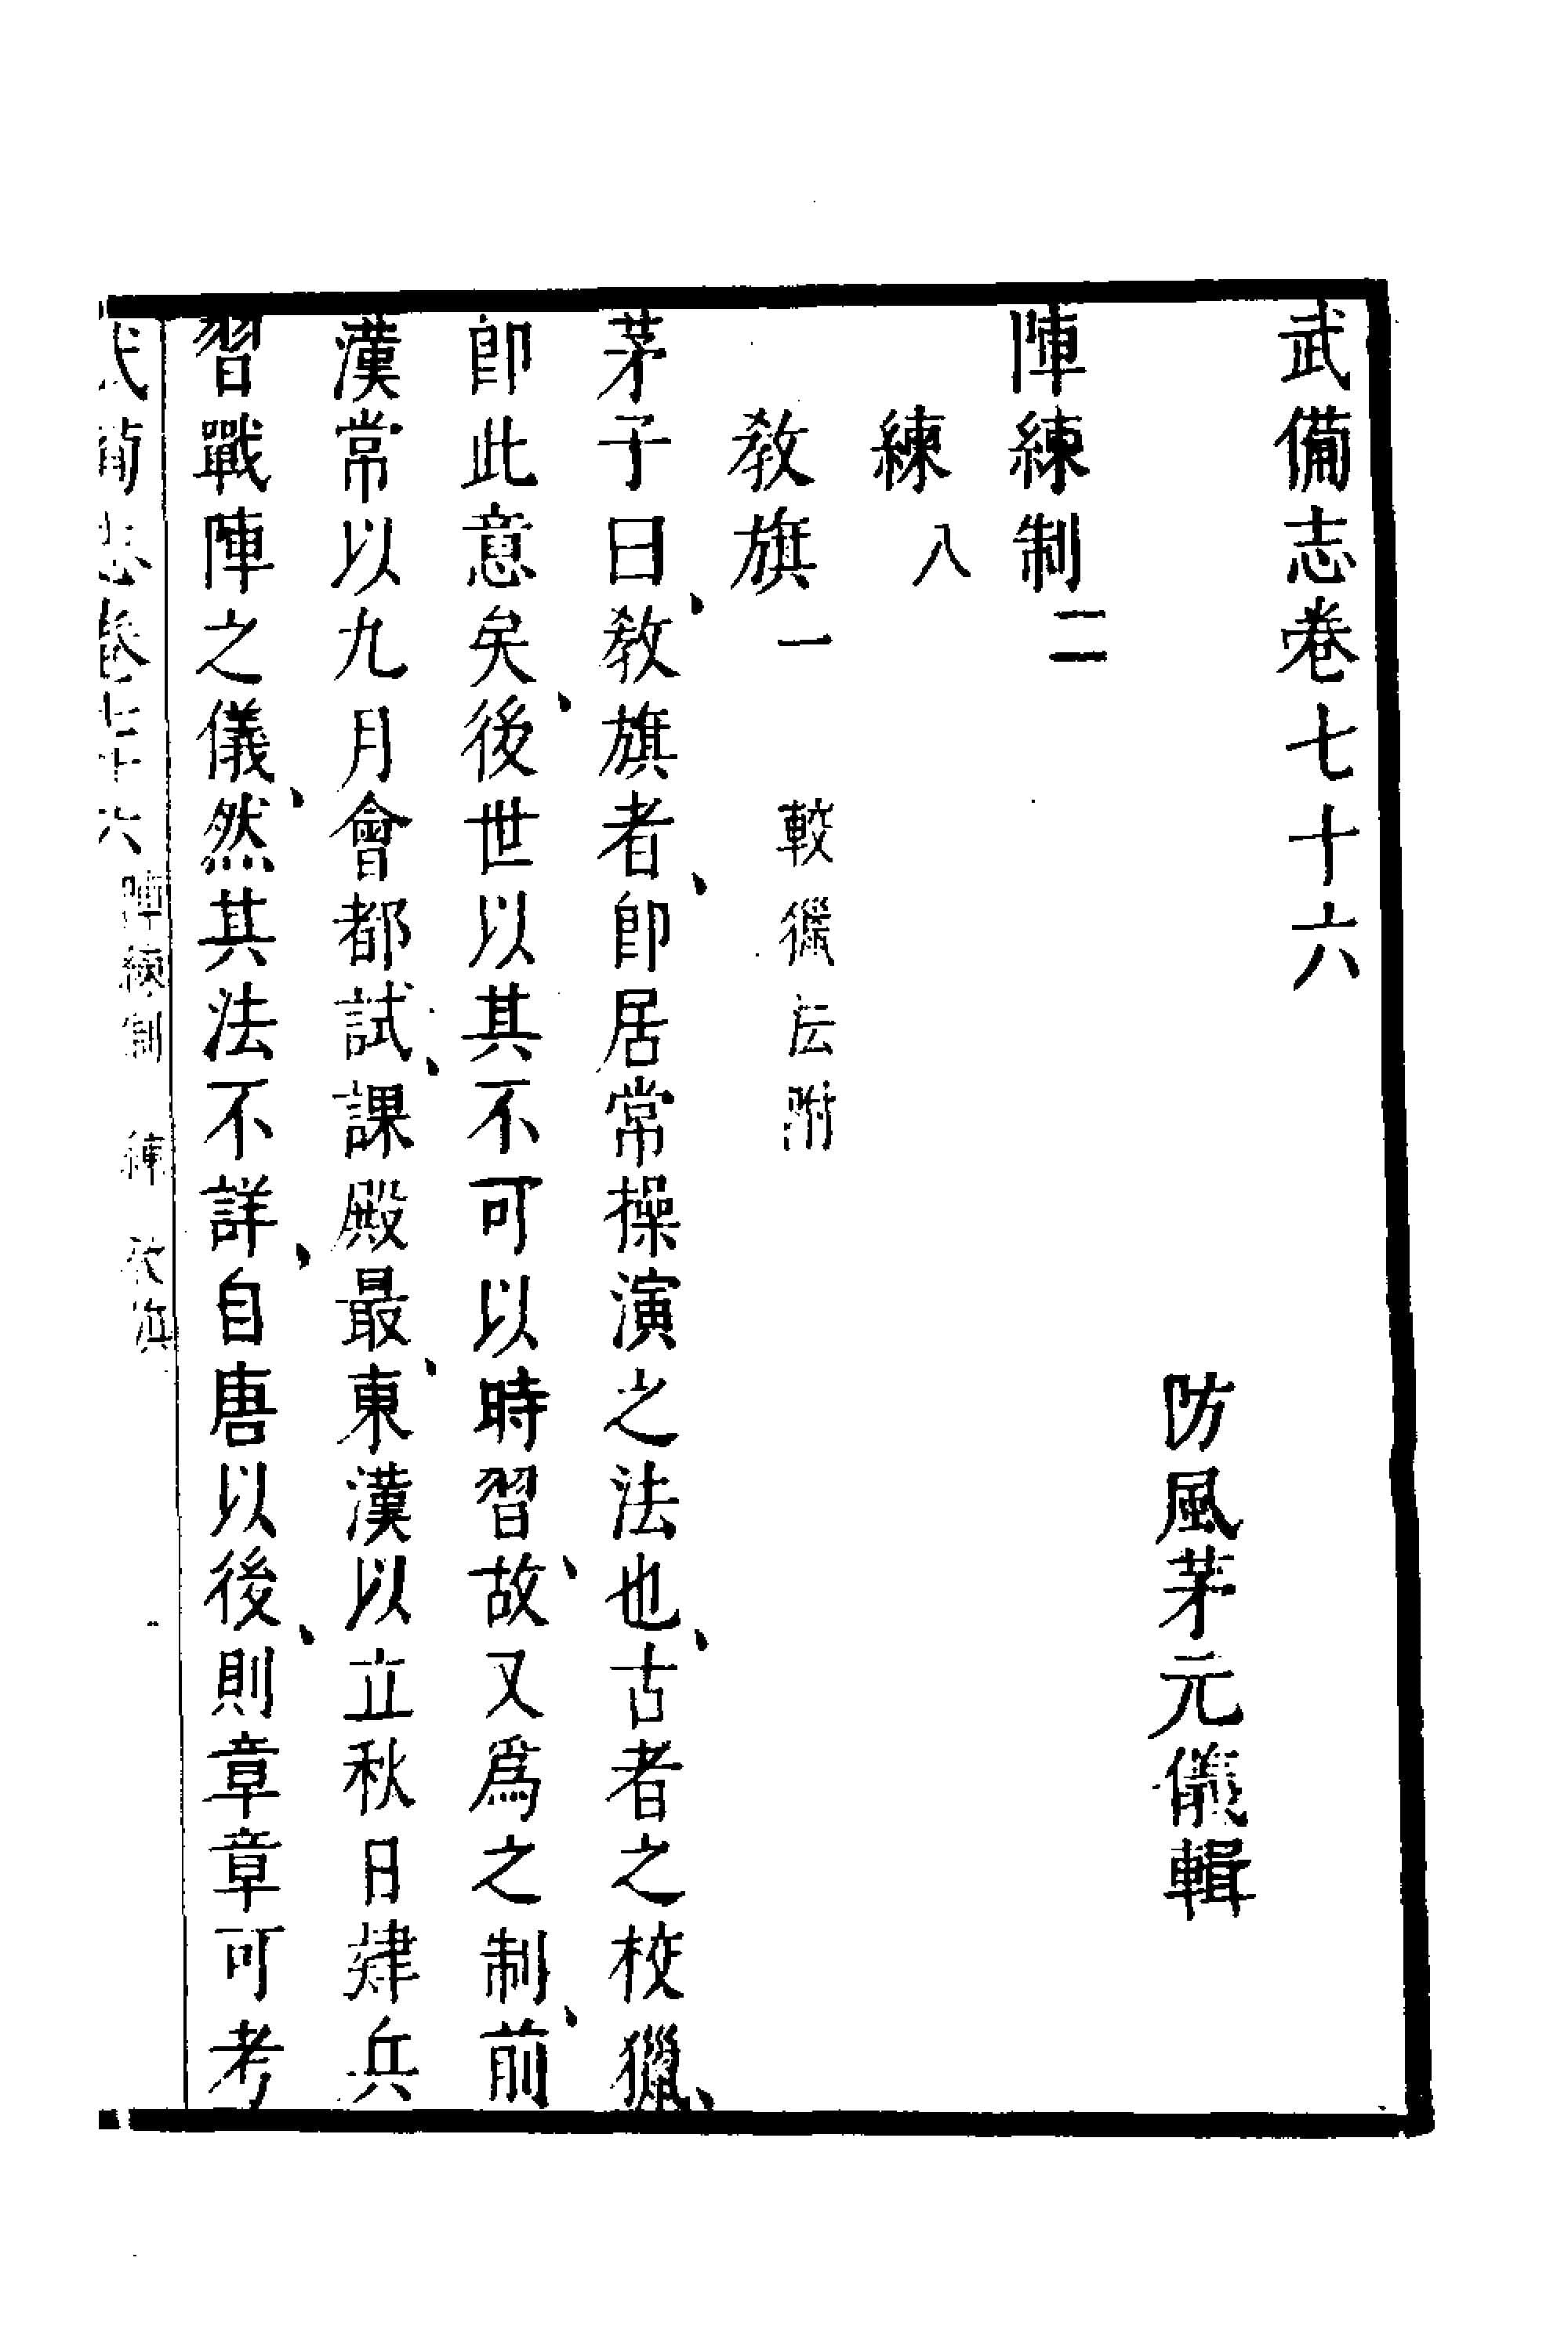 武備志卷七十六
防風茅元儀輯
陣練制二
練八
教旗一 較獵法附
茅子曰、教旗者、卽居常操演之法也、古者之校獵、
卽此意矣、後世以其不可以時習、故又爲之制、前
漢常以九月會都試、課殿最、東漢以立秋日肄兵
習戰陣之儀、然其法不詳、自唐以後、則章章可考
武備志卷七十六 陣練制 練 教旗